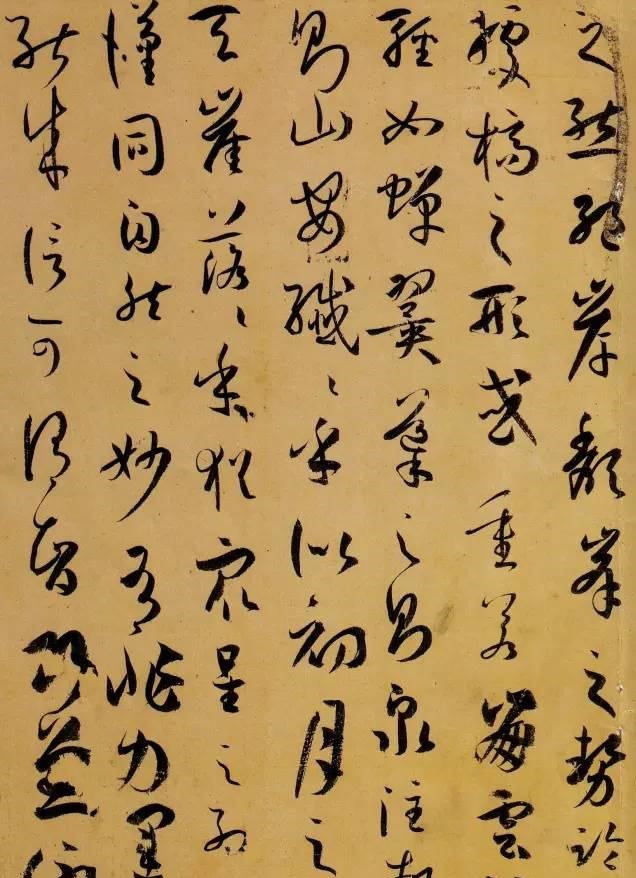 之態絕岸頹峯之勢臨
據槁之形或重若崩雲
輕如蟬翼導之則泉注頓
則山安纖〻乎似初月之
天崖落〻乎猶眾星之列
漢同自然之妙有非力運
能成信可謂智巧兼優